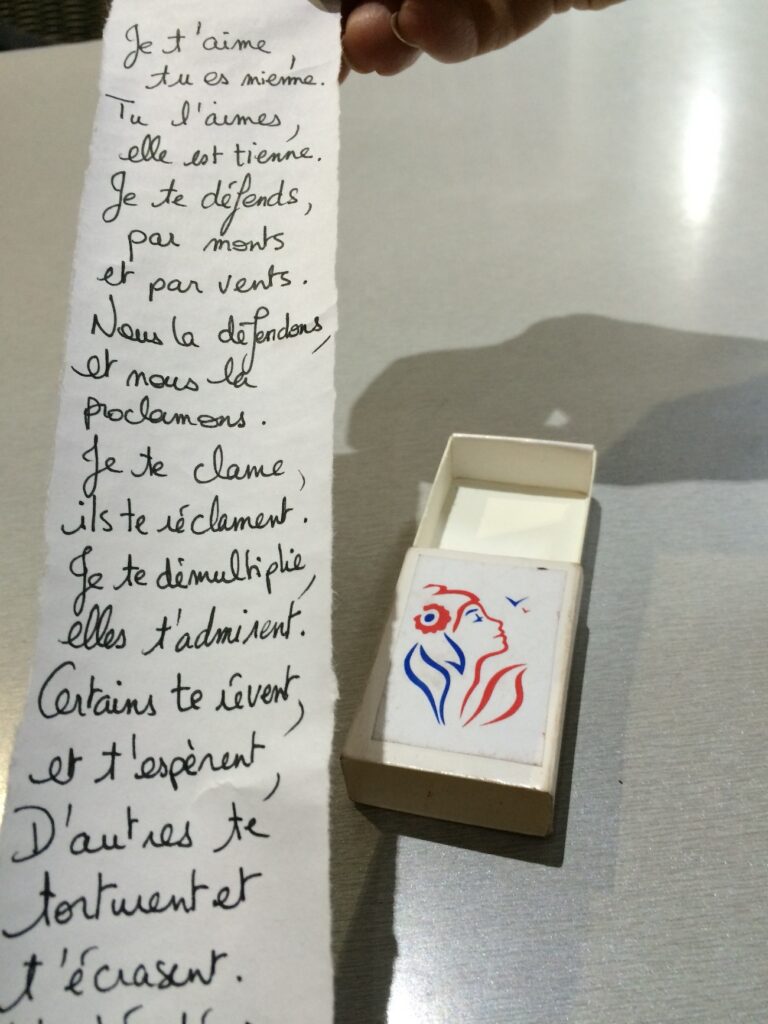 Je t'aime
tu es mienne.
Tu l'aimes,
elle est tienne.
Je te défends,
par monts
et par vents.
Nous la défendons,
et nous la
proclamons.
Je te clame,
ils te réclament.
Je te démultiplie,
elles t'admirent.
Certains te rêvent,
et t'espèrent,
D'autres te
torturent et
t'écrasent.